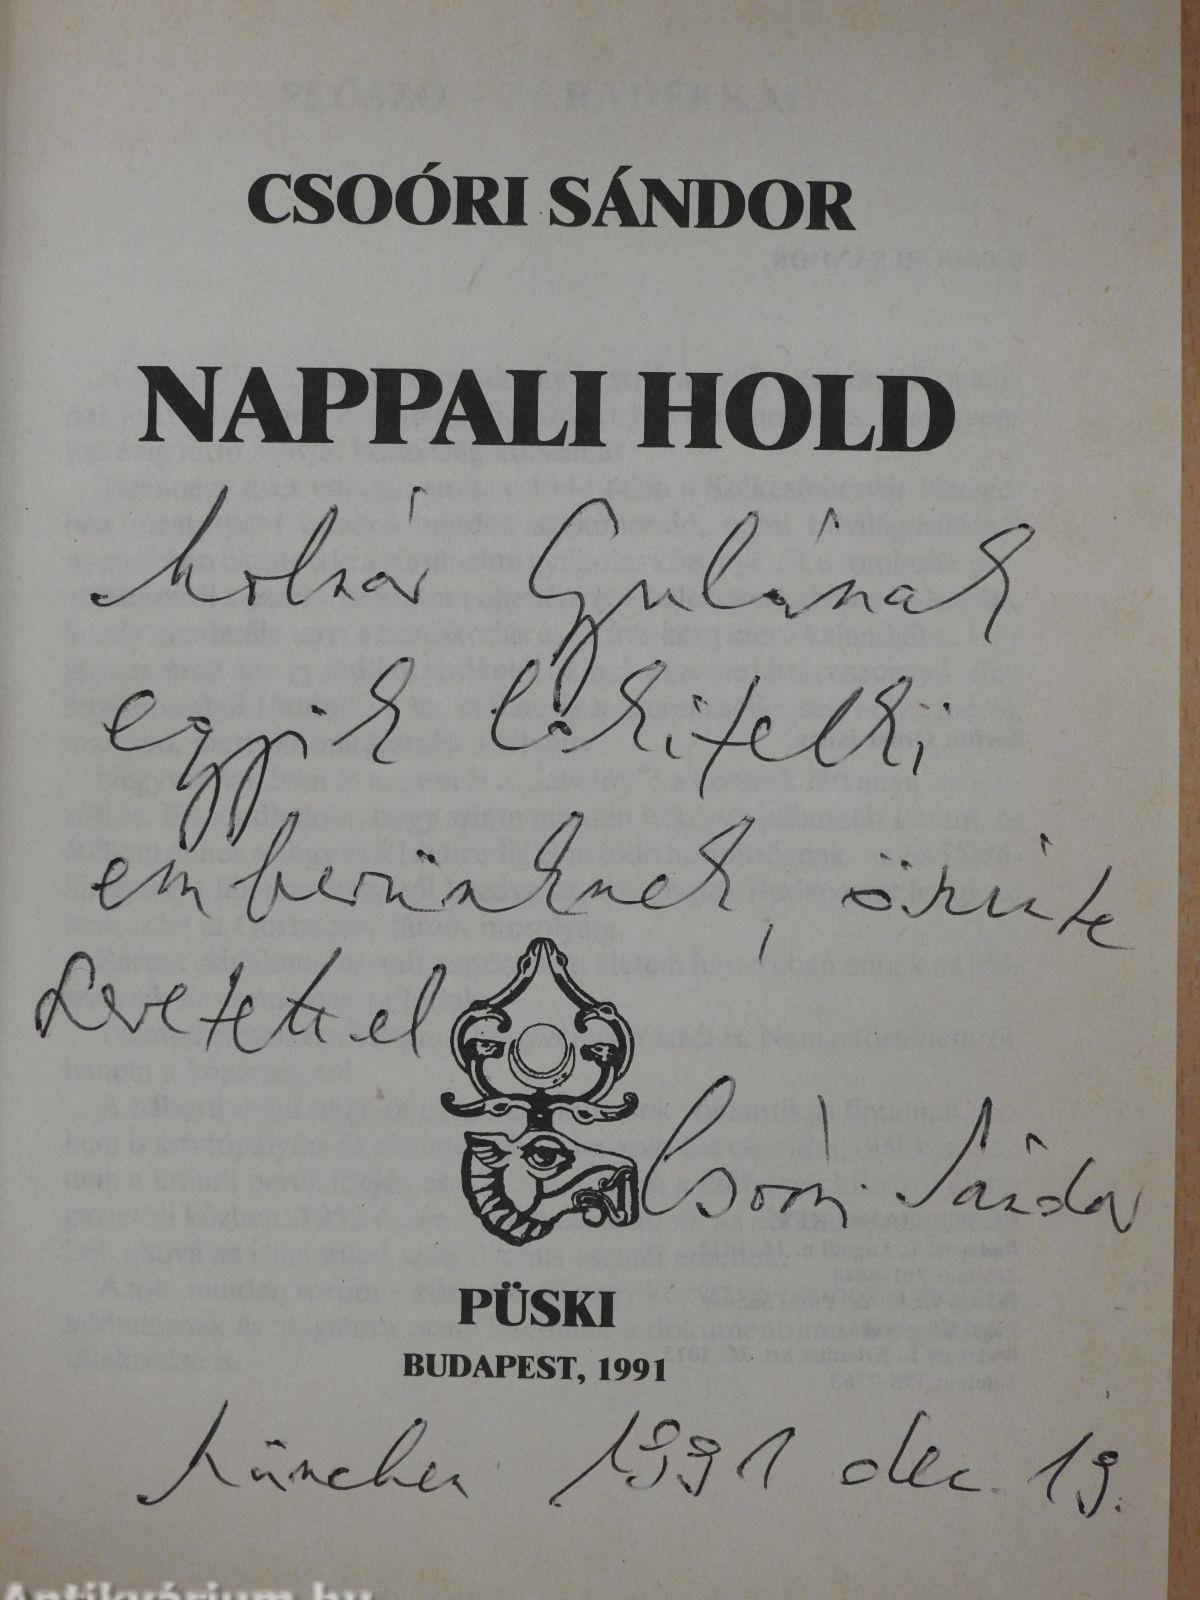 CSOÓRI SÁNDOR
NAPPALI HOLD
Molnár Gyulának
egyik lakitelki
emberünknek, őszinte
szeretettel
Csoóri Sándor
PÜSKI
BUDAPEST, 1991
München 1991 dec. 19.
Antikvárium.hu